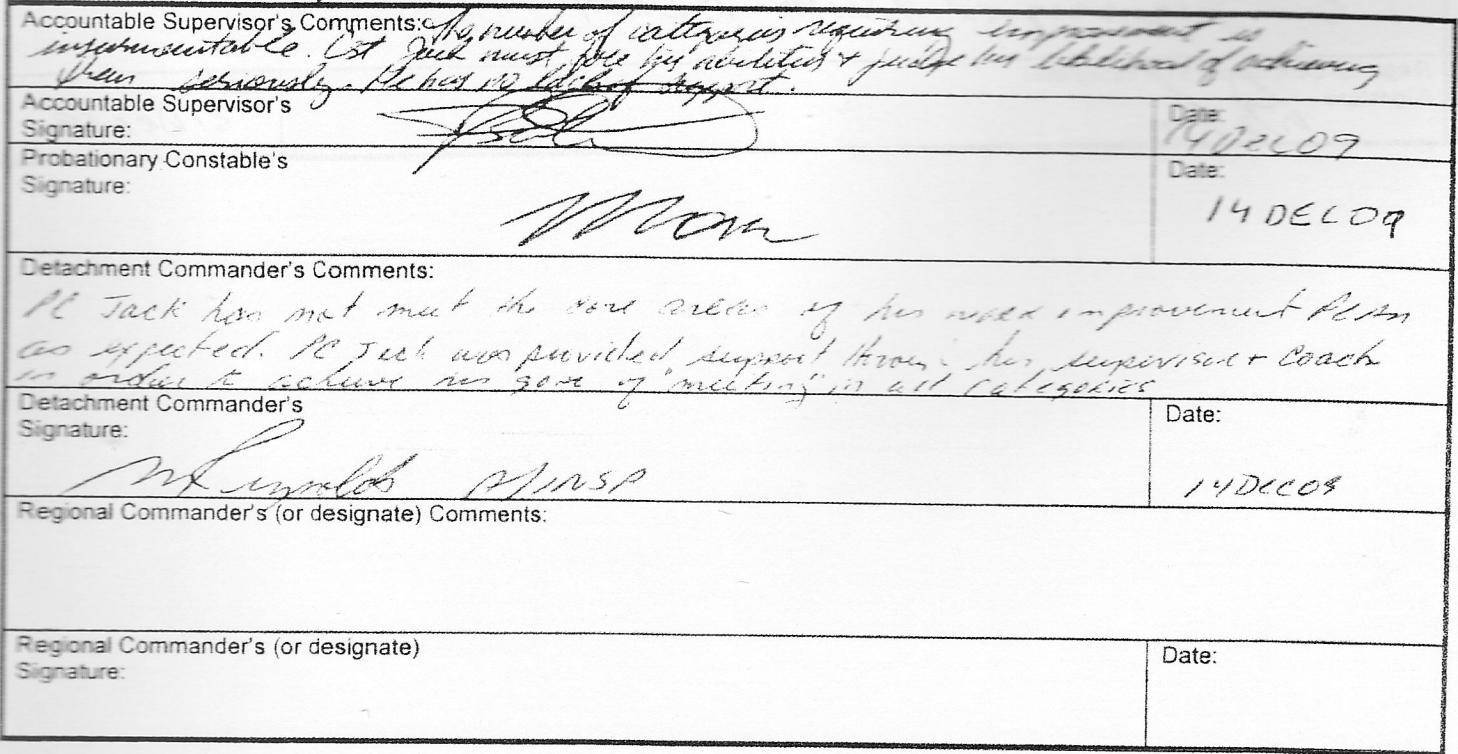 Accountable Supervisor's Comments: The number of categories requiring improvement is
insurmountable. Cst Jack must his abilities + judge his likelihood of achieving
them seriously. He has no lack of support.
Accountable Supervisor's
Signature:
Date:
14 Dec 09
Probationary Constable's
Signature:
Date:
14 DEC 09
Detachment Commander's Comments:
PC Jack has not meet the core areas of his work improvement Plan
as expected. PC Jack was provided support his supervisor + Coach
in order to achieve his goal of "meeting" in all categories
Detachment Commander's
Signature:
Reynolds A/INSP
Date:
14 Dec 09
Regional Commander's (or designate) Comments:
Regional Commander's (or designate)
Signature:
Date: